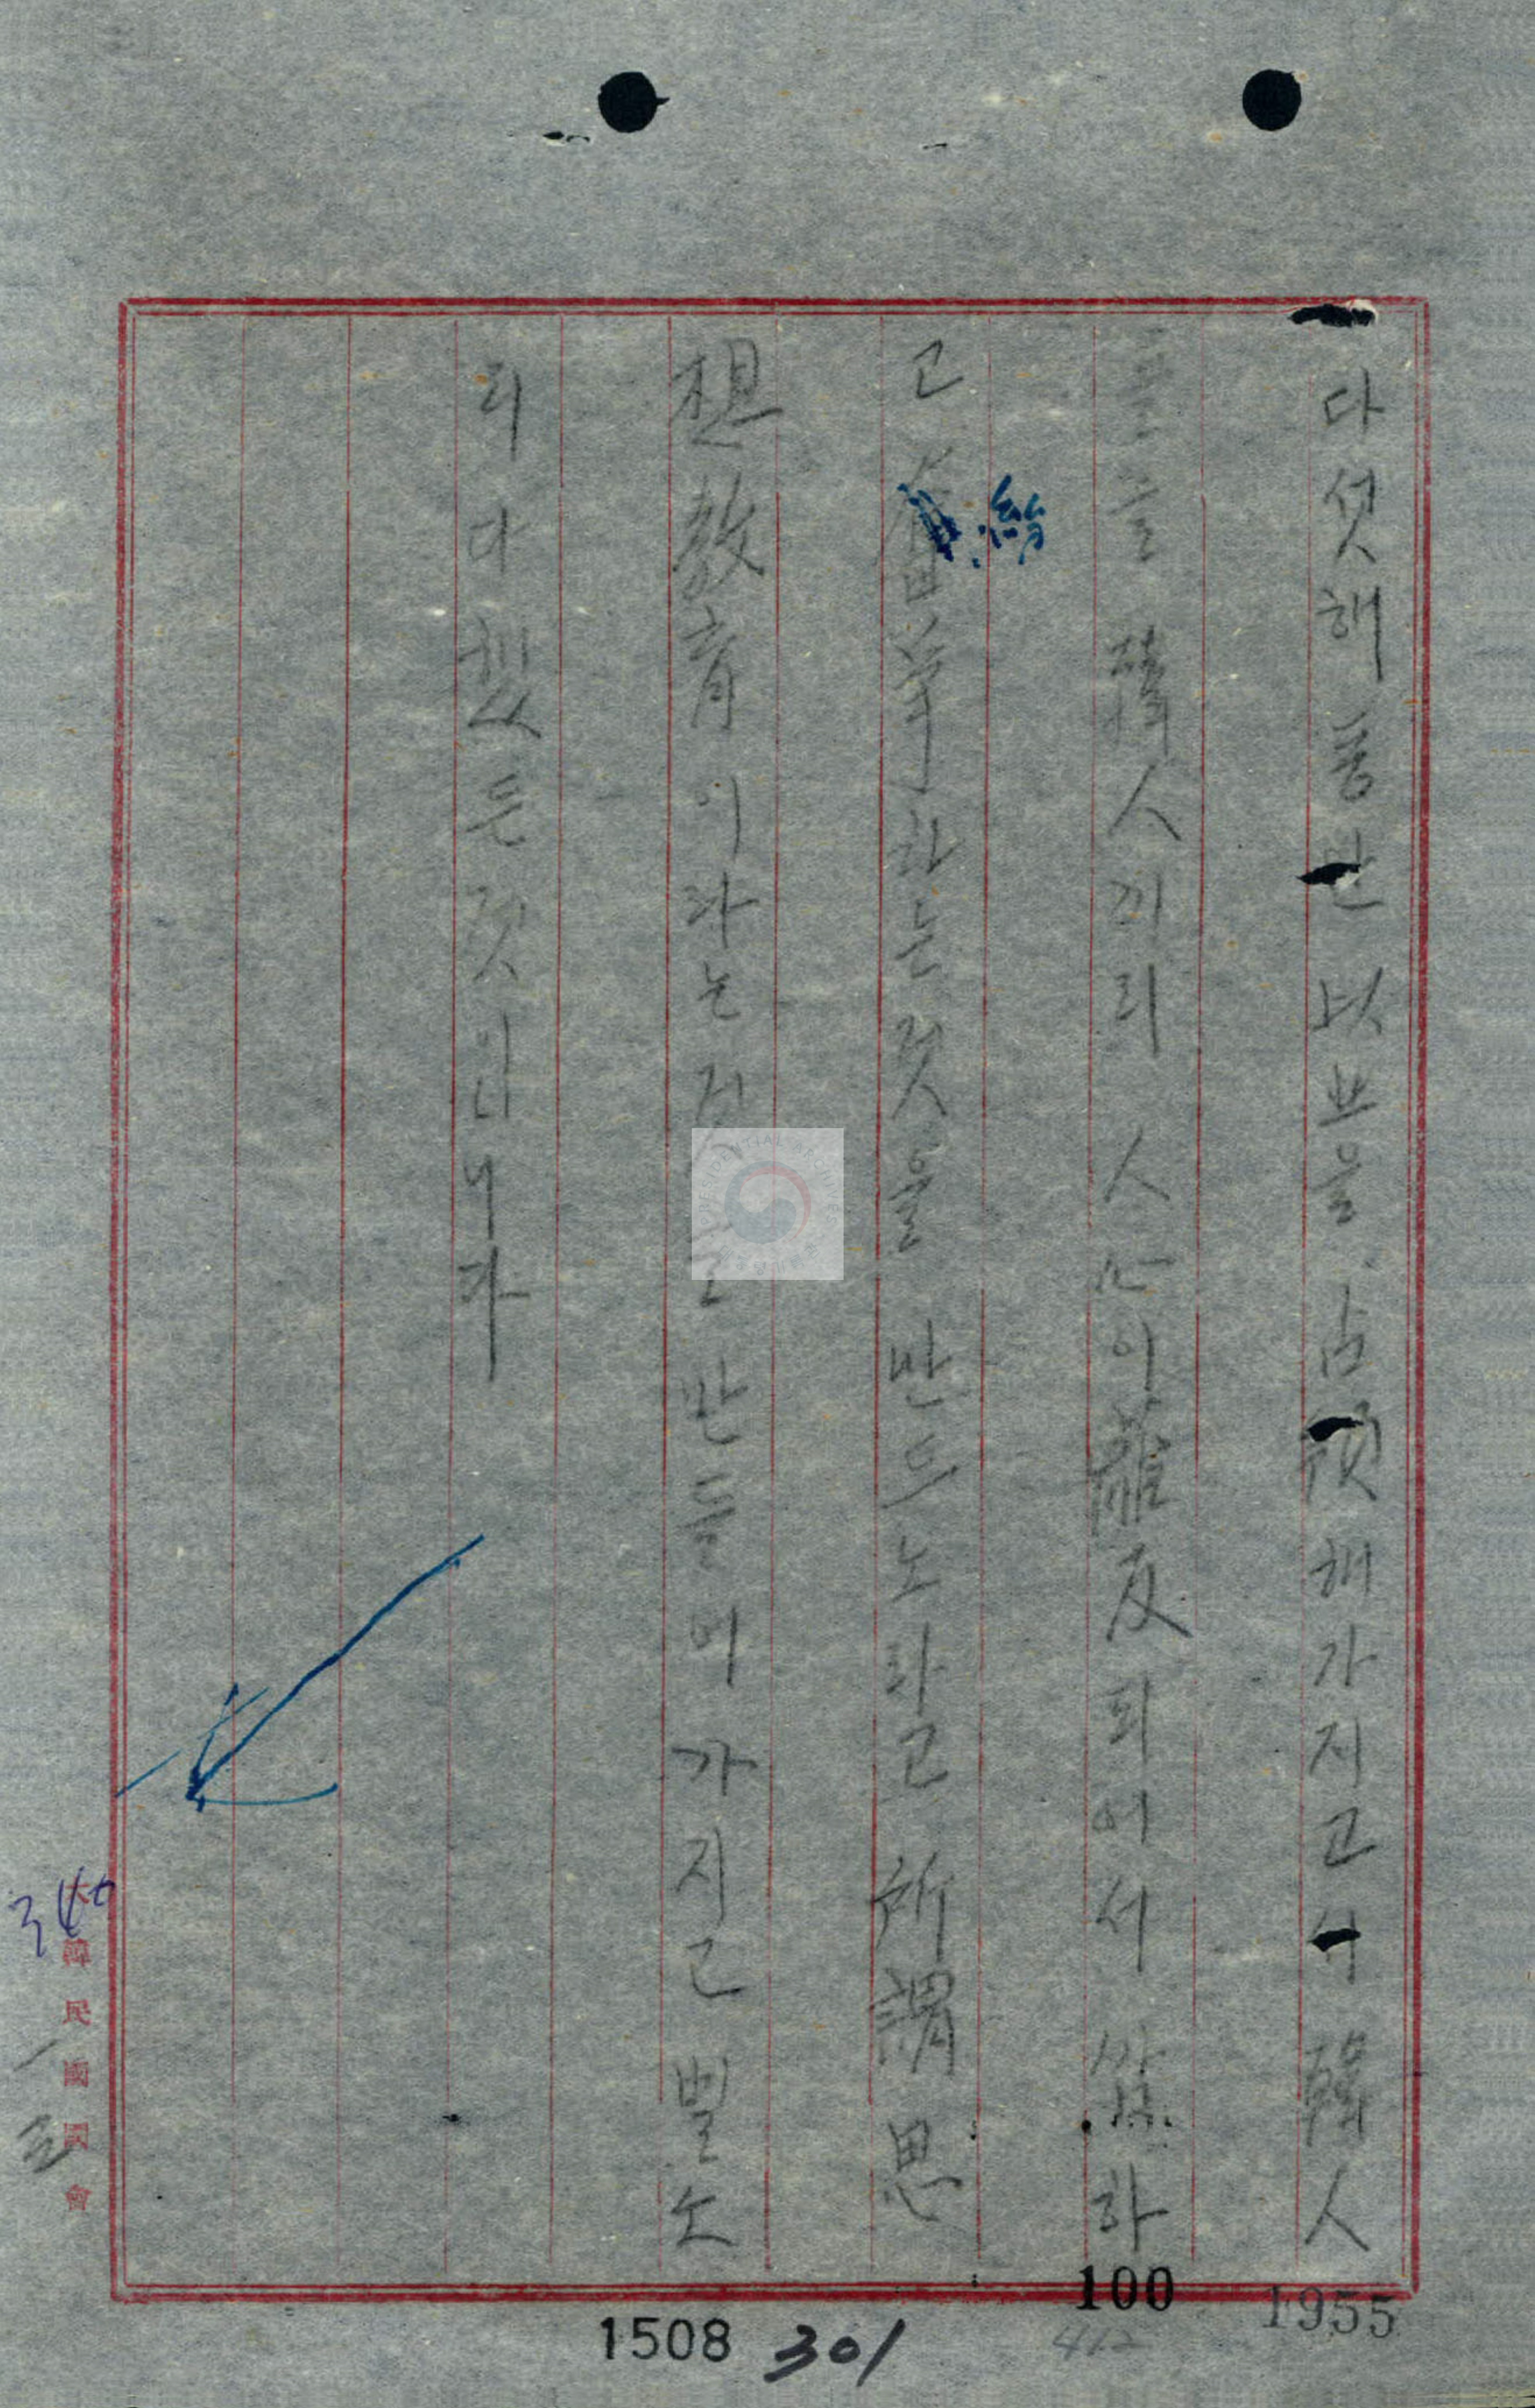 다섯해동안 以北을 占領해가지고서 韓人
들을 韓人끼리 人心이 離反되어서 싸홈하
고 하는것을 만드노라고 所謂思
想教育이라는 만들어가지고 별노
리 다했든것이니까
大韓民國國會
1508 301
100
1955